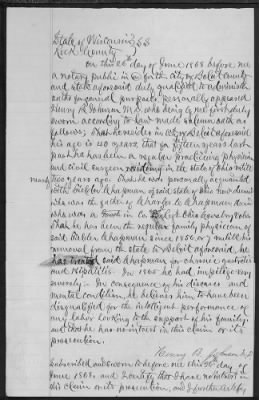 State of Wisconsin } SS
Rock County
On this 26 day of June 1868 before me
a notary public in & for the city of Beloit County
and state aforesaid duly qualified to administer
oaths for general purposes personally appeared
Henry P. Johnson M.D. who being by me first duly
sworn according to law made solemn oath as
follows; That he resides in city of Beloit aforesaid
his age is 40 years, that for fifteen years last
past he has been a regular practicing physician
and civil surgeon, residing in the state of Ohio until
years ago. That he was personally acquainted
with Chapman of said state of Ohio now deceased
who was the father of Charles Chapman
who was a in Co Regt Ohio Cavalry Vols.
That he has been the regular family physician of
said Chapman since 1850, or until his
removal from the State to Beloit aforesaid, & he
has treated said Chapman for chronic gastritis
and Hepatitis. In 1865 he had
severely. In consequence of his disease and
mental condition, he believes him to have been
disqualified for the intelligent performance of
any labor looking to the support of his family;
and that he has no interest in this claim or its
prosecution.
Henry P. Johnson M.D.
Subscribed and sworn to before me this 26 day of
June 1868, and I certify that I have no interest in
this claim or its prosecution, and I further certify,